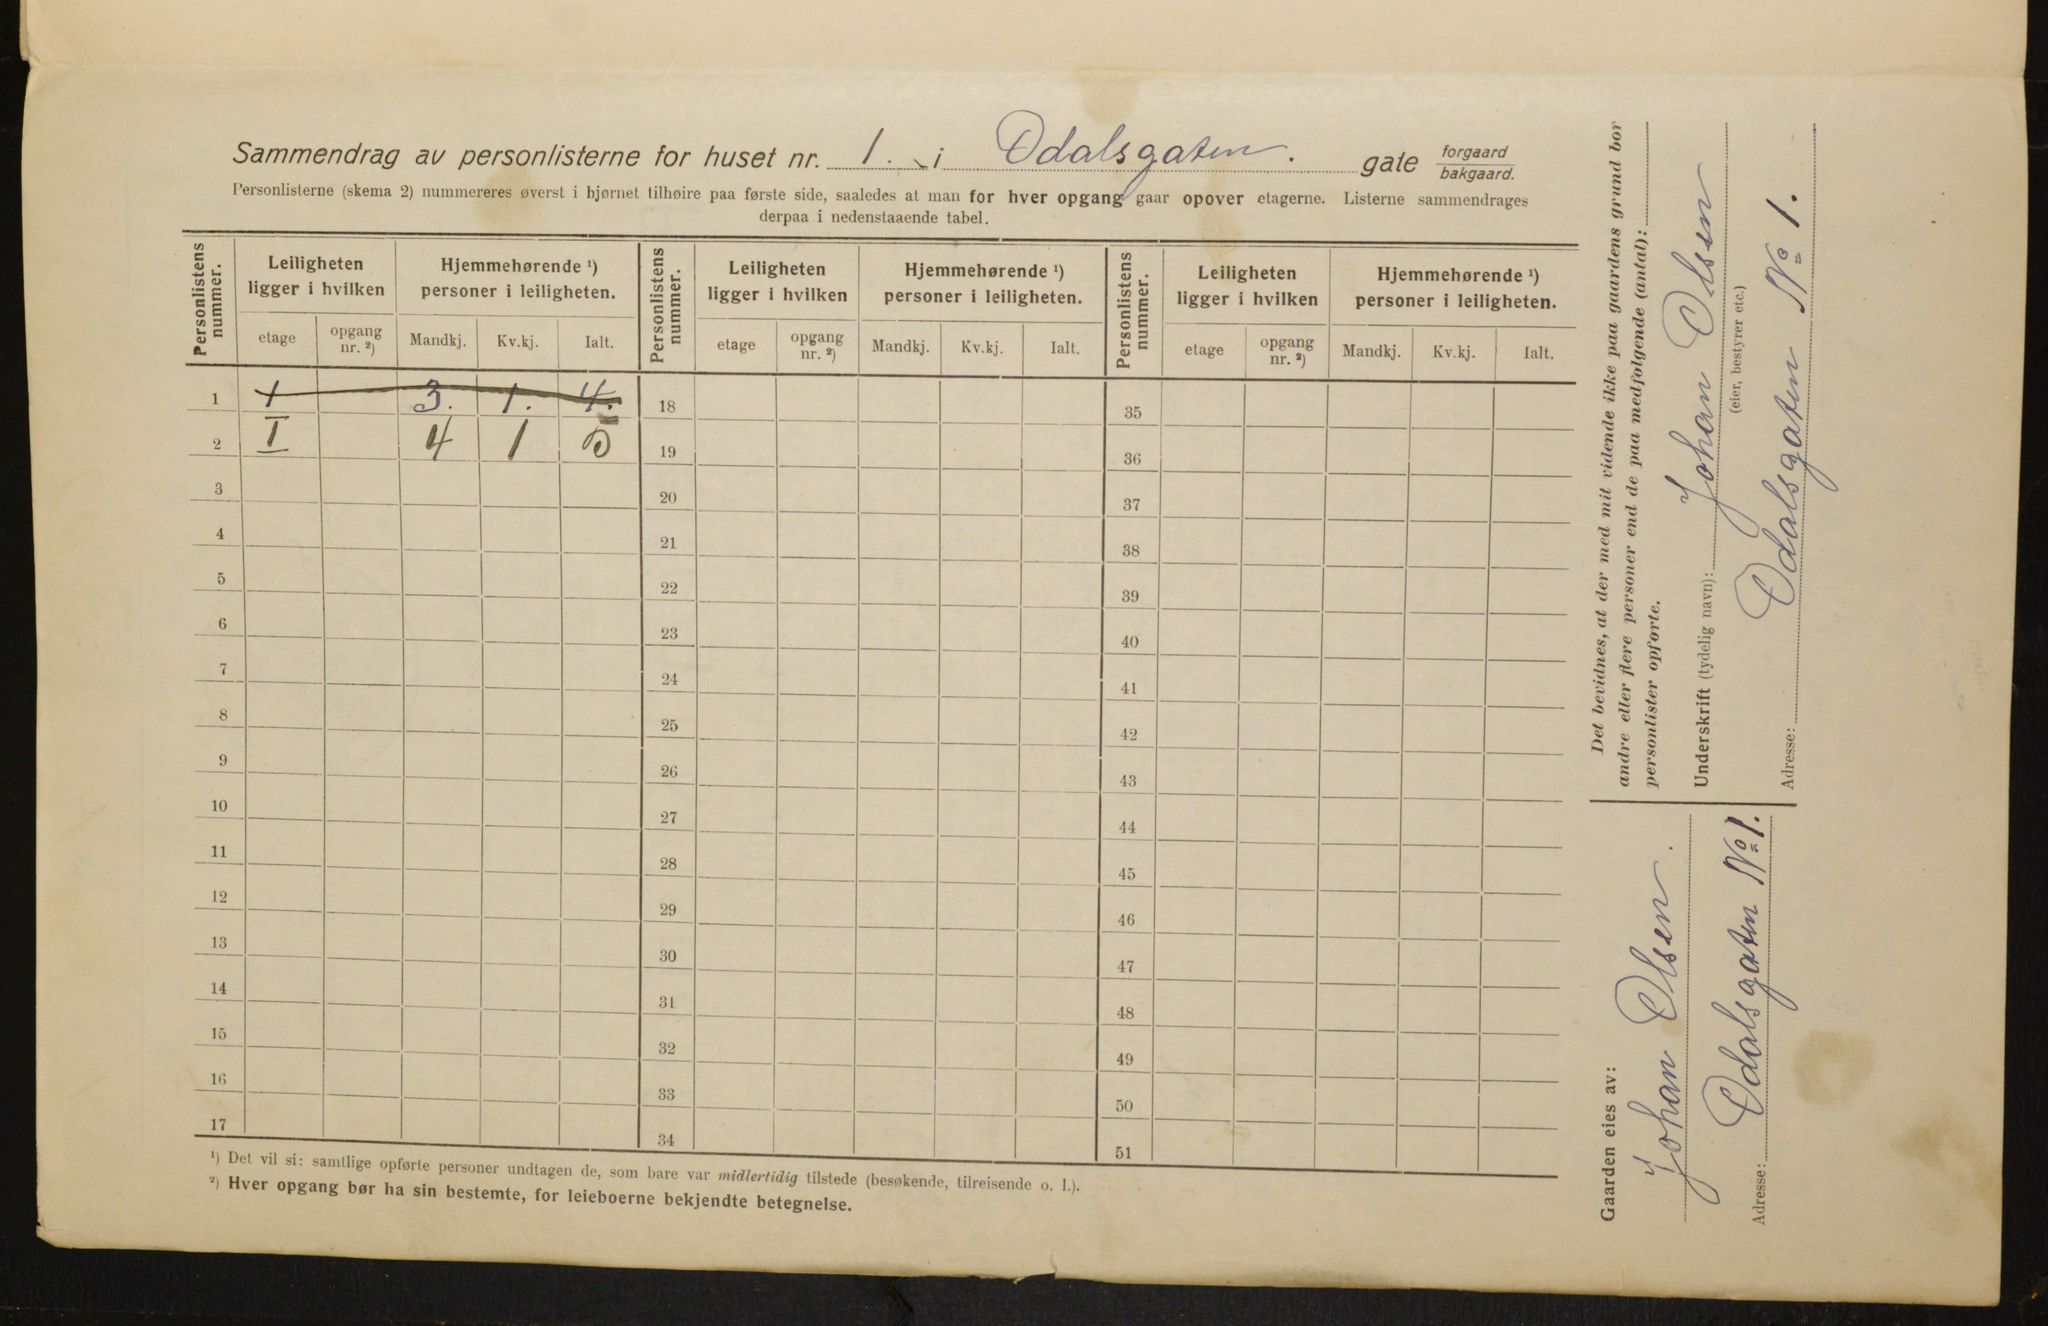 Sammendrag av personlisterne for huset nr. 1. i Odalsgaten. gate forgaard bakgaard.
Personlisterne (skema 2) nummereres øverst i hjørnet tilhøire paa første side, saaledes at man for hver opgang gaar opover etagerne. Listerne sammendrages
derpaa i nedenstaaende tabel.
Personlistens nummer. Leiligheten ligger i hvilken Hjemmehørende ¹) personer i leiligheten. Personlistens nummer. Leiligheten ligger i hvilken Hjemmehørende ¹) personer i leiligheten. Personlistens nummer. Leiligheten ligger i hvilken Hjemmehørende ¹) personer i leiligheten.
etage opgang nr. ²) Mandkj. Kv.kj. Ialt. etage opgang nr. ²) Mandkj. Kv.kj. Ialt. etage opgang nr. ²) Mandkj. Kv.kj. Ialt.
1 1 3. 1. 4. 18 35
2 I 4 1 5 19 36
3 20 37
4 21 38
5 22 39
6 23 40
7 24 41
8 25 42
9 26 43
10 27 44
11 28 45
12 29 46
13 30 47
14 31 48
15 32 49
16 33 50
17 34 51
¹) Det vil si: samtlige opførte personer undtagen de, som bare var midlertidig tilstede (besøkende, tilreisende o. l.).
²) Hver opgang bør ha sin bestemte, for leieboerne bekjendte betegnelse.
Det bevidnes, at der med mit vidende ikke paa gaardens grund bor
andre eller flere personer end de paa medfølgende (antal):
personlister opførte.
Underskrift (tydelig navn): Johan Olsen
(eier, bestyrer etc.)
Adresse: Odalsgaten No 1.
Gaarden eies av:
Johan Olsen.
Adresse: Odalsgaten No 1.